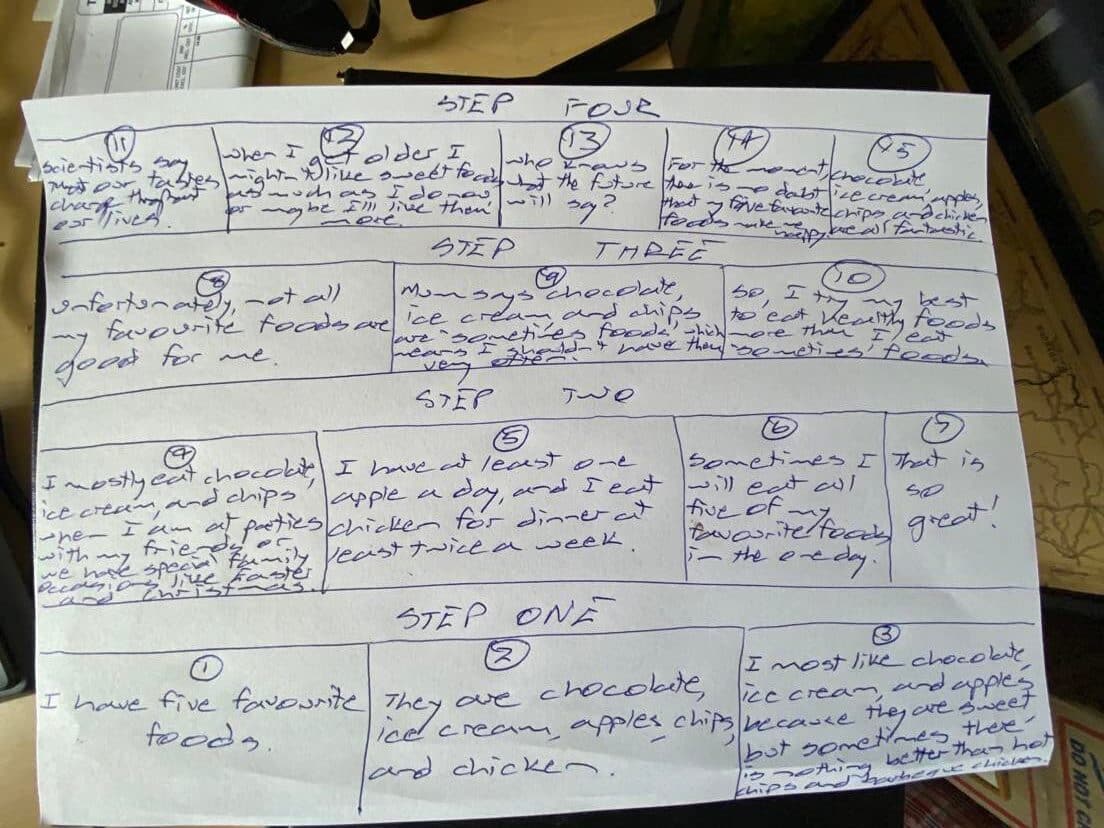 STEP FOUR
11
scientists say
that our tastes
change throughout
our lives.
12
when I get older I
mightn't like sweet foods
as much as I do now
or maybe I'll like them
more.
13
who knows
what the future
will say?
14
For the moment,
there is no doubt
that my five favourite
foods make me
happy.
15
chocolate,
ice cream, apples,
chips, and chicken
are all fantastic.
STEP THREE
8
unfortunately, not all
my favourite foods are
good for me.
9
Mum says chocolate,
ice cream, and chips
are 'sometimes foods', which
means I shouldn't have them
very often.
10
So, I try my best
to eat healthy foods
more than I eat
'sometimes' foods.
STEP TWO
4
I mostly eat chocolate,
ice cream, and chips
when I am at parties
with my friends or
we have special family
occasions like Easter
and Christmas.
5
I have at least one
apple a day, and I eat
chicken for dinner at
least twice a week.
6
Sometimes I
will eat all
five of my
favourite foods
in the one day.
7
That is
so
great!
STEP ONE
1
I have five favourite
foods.
2
They are chocolate,
ice cream, apples, chips,
and chicken.
3
I most like chocolate,
ice cream, and apples
because they are sweet
but sometimes there
is nothing better than hot
chips and barbeque chicken.
DO NOT